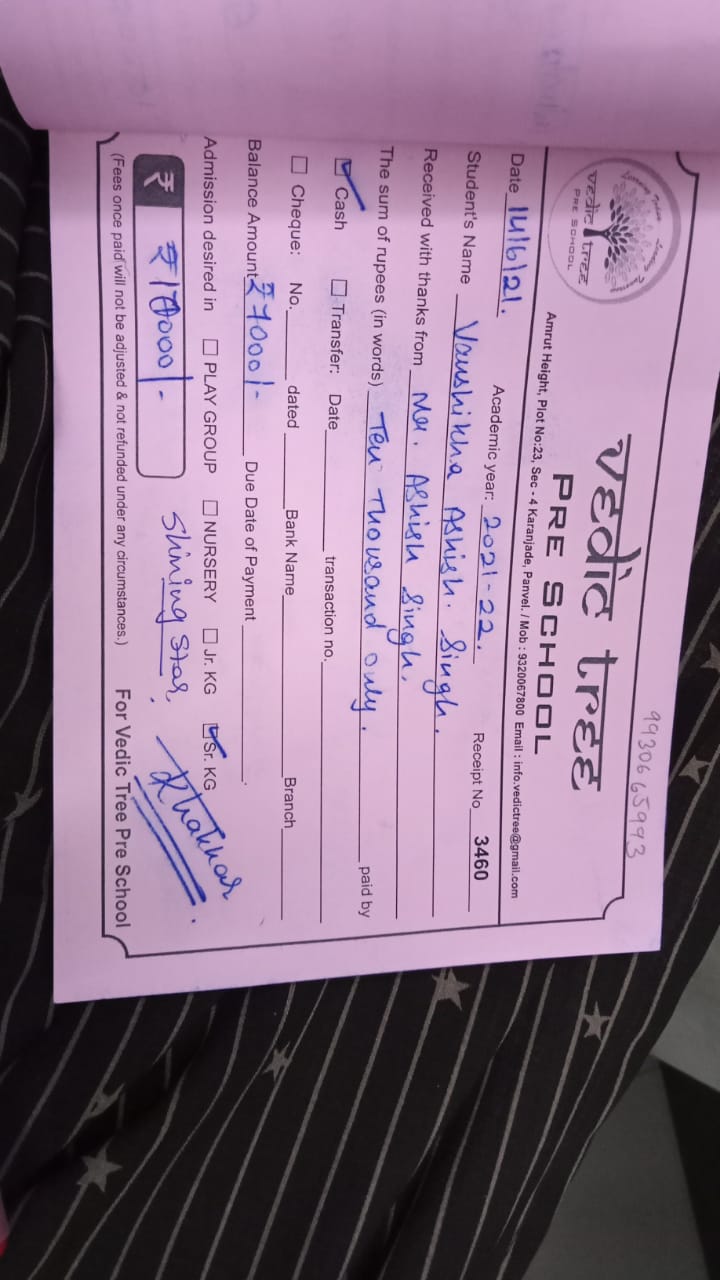 9930665993
vedic tree
PRE SCHOOL
vedic tree
PRE SCHOOL
Amrut Height, Plot No:23, Sec - 4 Karanjade, Panvel. / Mob : 9320067800 Email : info.vedictree@gmail.com
Date 14/6/21. Academic year: 2021-22. Receipt No 3460
Student's Name Vanshikha Ashish. Singh.
Received with thanks from Mr. Ashish Singh.
The sum of rupees (in words) Ten Thousand only. paid by
☑ Cash ☐ Transfer: Date transaction no.
☐ Cheque: No. dated Bank Name Branch
Balance Amount ₹7000/- Due Date of Payment .
Admission desired in ☐ PLAY GROUP ☐ NURSERY ☐ Jr. KG ☑ Sr. KG
₹ ₹10000/- Shining Star,
(Fees once paid will not be adjusted & not refunded under any circumstances.) For Vedic Tree Pre School